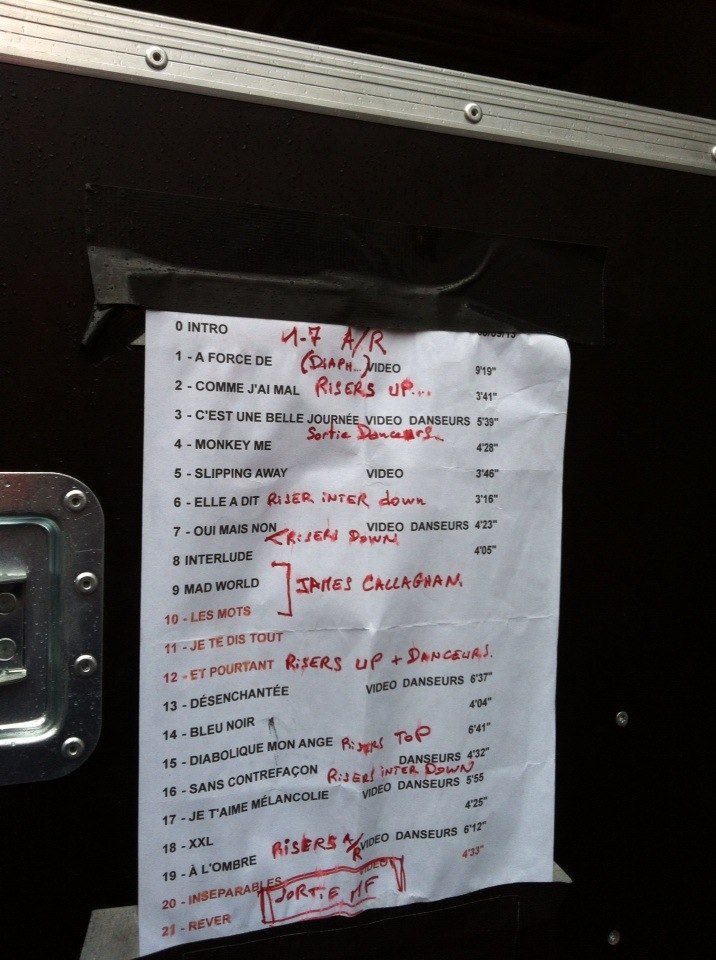 0 INTRO 1-7 A/R
1 - A FORCE DE (DIAPH...) VIDEO 9'19"
2 - COMME J'AI MAL RISERS UP... 3'41"
3 - C'EST UNE BELLE JOURNÉE VIDEO DANSEURS 5'39"
Sortie Danceurs
4 - MONKEY ME 4'28"
5 - SLIPPING AWAY VIDEO 3'46"
6 - ELLE A DIT RISER INTER down 3'16"
7 - OUI MAIS NON VIDEO DANSEURS 4'23"
< RISERS DOWN
8 INTERLUDE 4'05"
9 MAD WORLD JAMES CALLAGHAN.
10 - LES MOTS
11 - JE TE DIS TOUT
12 - ET POURTANT RISERS UP + DANCEURS.
13 - DÉSENCHANTÉE VIDEO DANSEURS 6'37"
14 - BLEU NOIR 4'04"
15 - DIABOLIQUE MON ANGE RISERS TOP 6'41"
16 - SANS CONTREFAÇON DANSEURS 4'32"
RISERS INTER DOWN
17 - JE T'AIME MÉLANCOLIE VIDEO DANSEURS 5'55
18 - XXL 4'25"
19 - À L'OMBRE RISERS A/R VIDEO DANSEURS 6'12"
20 - INSEPARABLES VIDEO 4'33"
21 - REVER SORTIE MF